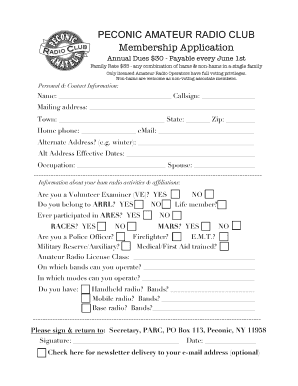 PECONIC
RADIO CLUB
AMATEUR
PECONIC AMATEUR RADIO CLUB
Membership Application
Annual Dues $30 - Payable every June 1st
Family Rate $35 - any combination of hams & non-hams in a single family
Only licensed Amateur Radio Operators have full voting privileges.
Non-hams are welcome as non-voting associate members.
Personal & Contact Information:
Name: Callsign:
Mailing address:
Town: State: Zip:
Home phone: eMail:
Alternate Address? (e.g. winter):
Alt Address Effective Dates:
Occupation: Spouse:
Information about your ham radio activities & affiliations:
Are you a Volunteer Examiner (VE)? YES NO
Do you belong to ARRL? YES NO Life member?
Ever participated in ARES? YES NO
RACES? YES NO MARS? YES NO
Are you a Police Officer? Firefighter? E.M.T.?
Military Reserve/Auxiliary? Medical/First Aid trained?
Amateur Radio License Class:
On which bands can you operate?
In which modes can you operate?
Do you have: Handheld radio? Bands?
Mobile radio? Bands?
Base radio? Bands?
Please sign & return to: Secretary, PARC, PO Box 113, Peconic, NY 11958
Signature: Date:
Check here for newsletter delivery to your e-mail address (optional)